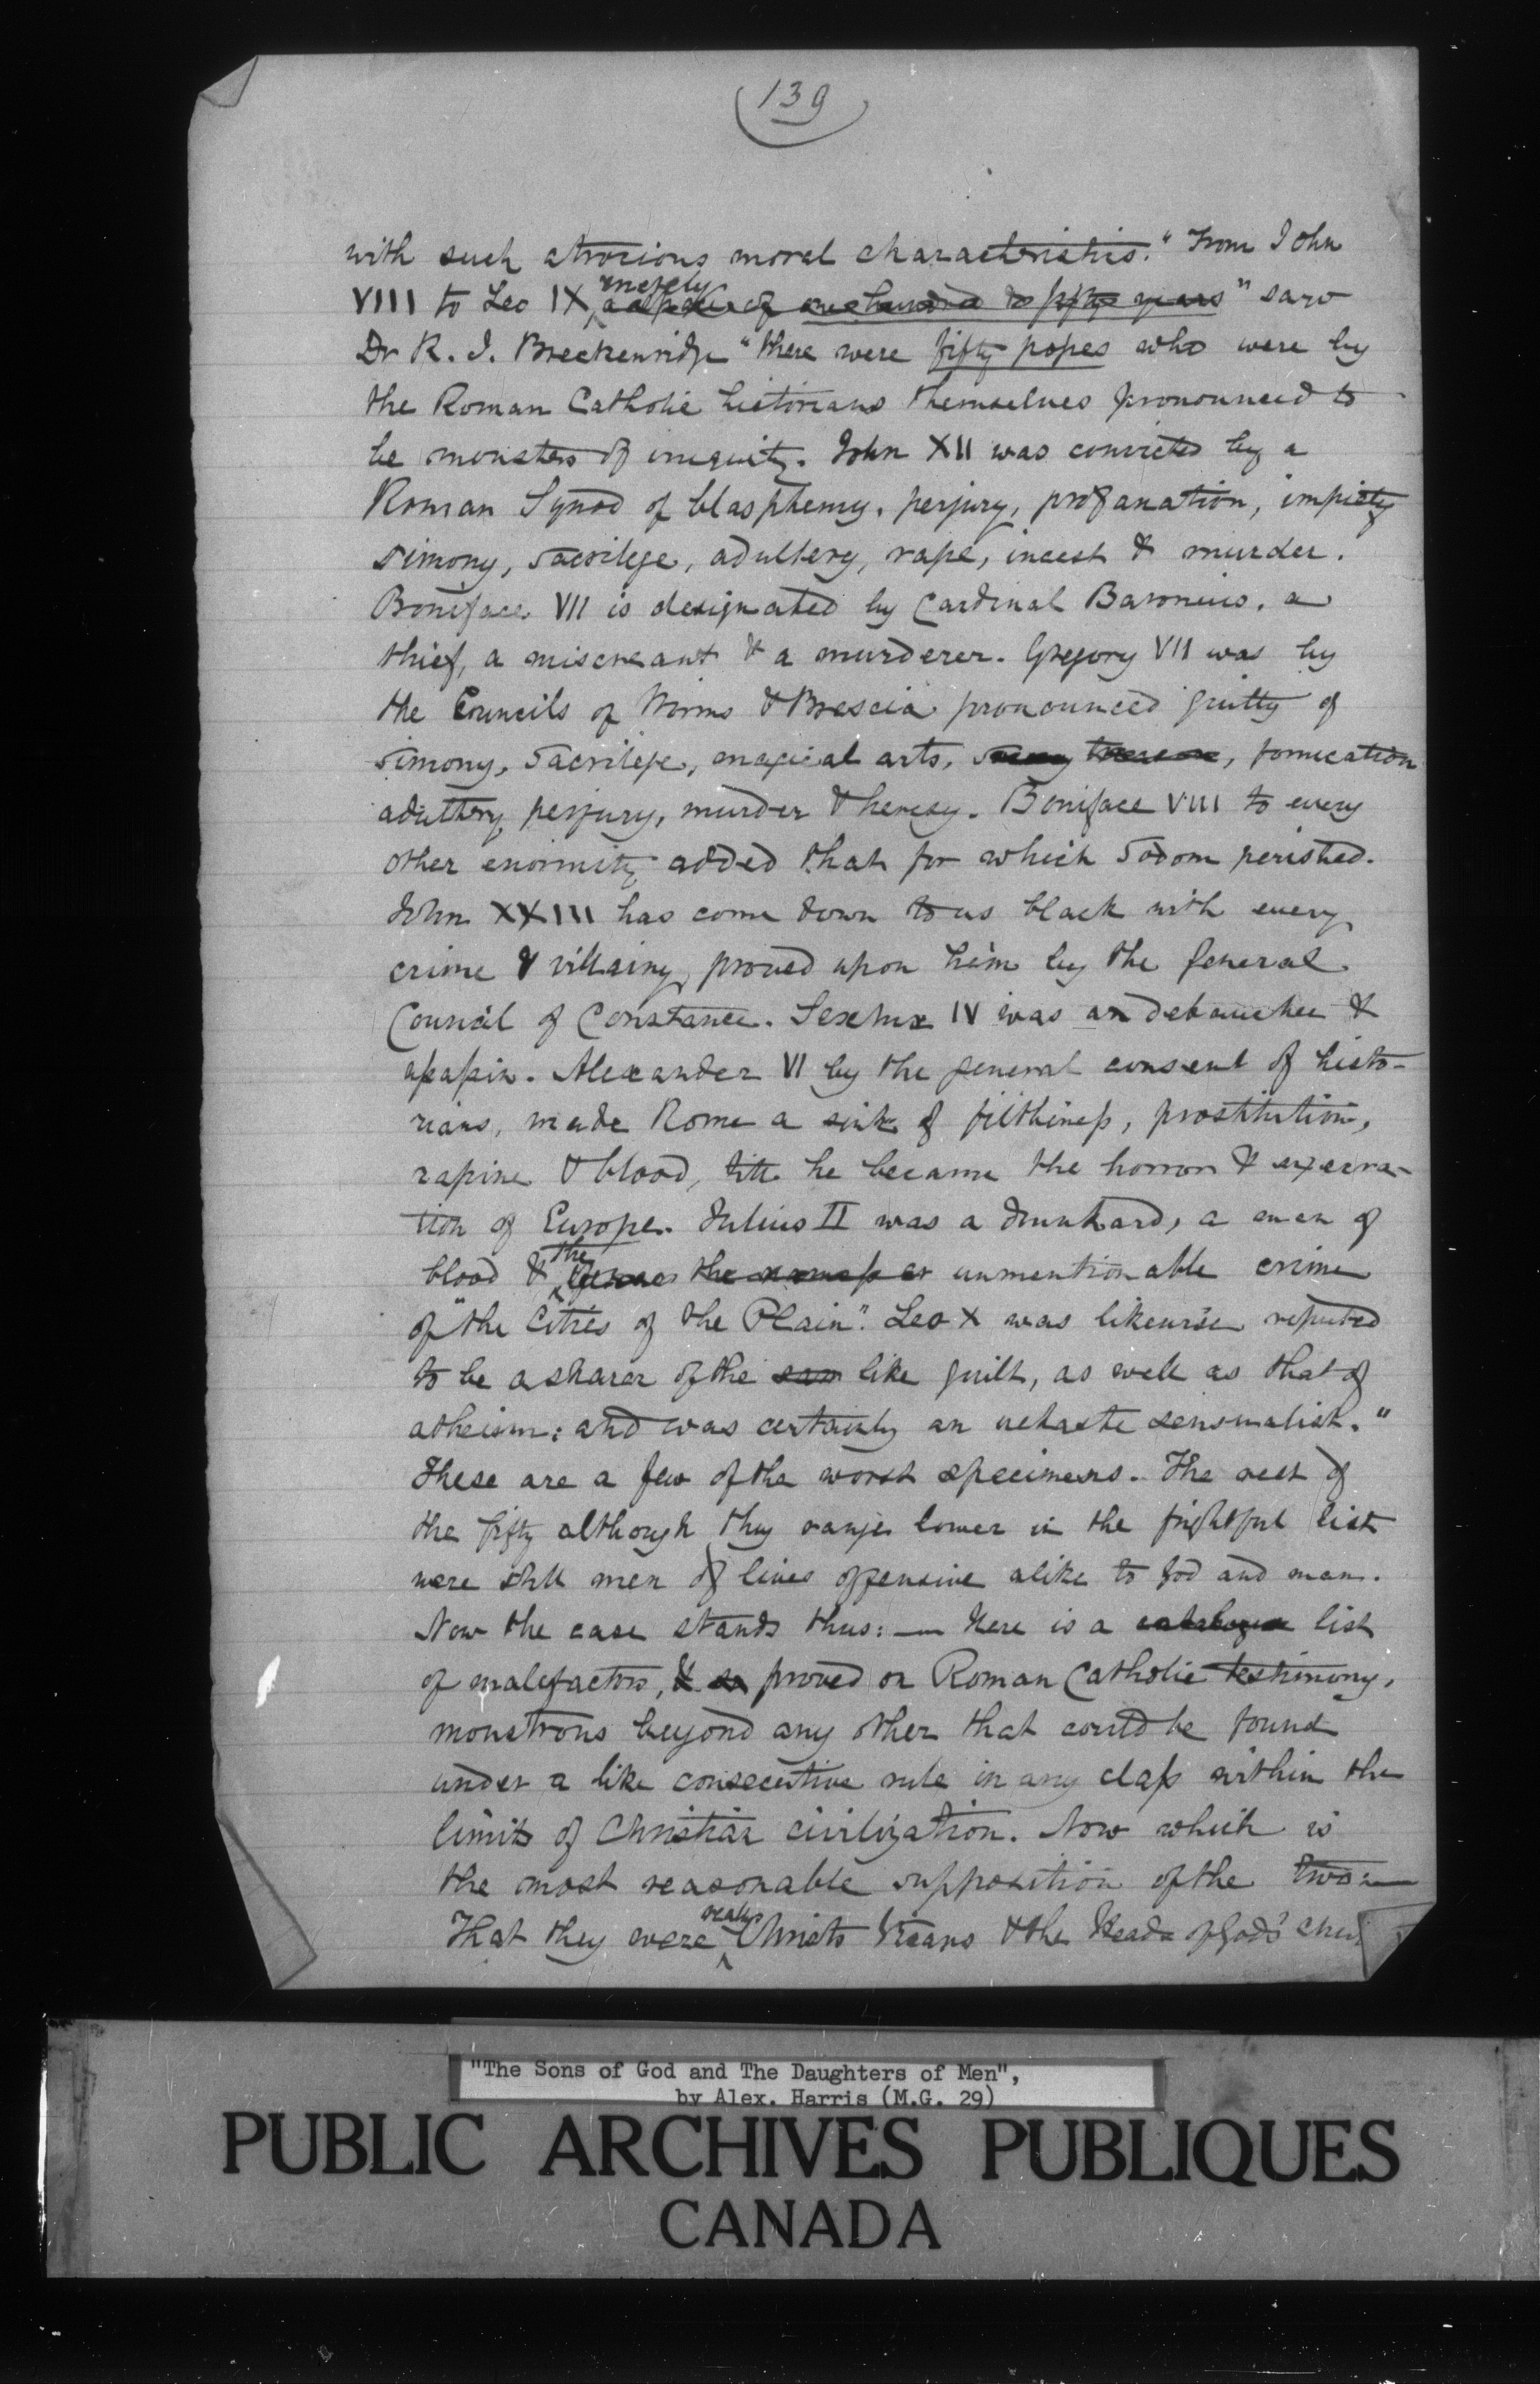 139
with such atrocious moral characteristics. "From John
VIII to Leo IX, merely a space of one hundred & fifty years" says
Dr R. J. Breckenridge "there were fifty popes who were by
the Roman Catholic historians themselves pronounced to
be monsters of iniquity. John XII was convicted by a
Roman Synod of blasphemy, perjury, profanation, impiety
simony, sacrilege, adultery, rape, incest & murder.
Boniface VII is designated by Cardinal Baronius, a
thief, a miscreant & a murderer. Gregory VII was by
the Councils of Worms & Brescia pronounced guilty of
simony, sacrilege, magical arts, treason, fornication
adultery, perjury, murder & heresy. Boniface VIII to every
other enormity added that for which Sodom perished.
John XXIII has come down to us black with every
crime & villainy, proved upon him by the general
Council of Constance. Sextus IV was an debauchee &
assassin. Alexander VI by the general consent of histo-
rians, made Rome a sink of filthiness, prostitution,
rapine & blood, till he became the horror & execra-
tion of Europe. Julius II was a drunkard, a man of
blood & the unmentionable crime
of "the Cities of the Plain". Leo X was likewise reputed
to be a sharer of the sam like guilt, as well as that of
atheism: and was certainly an uchaste sensualist."
These are a few of the worst specimens. The rest of
the fifty although they range lower in the frightful list
were still men of lives offensive alike to God and man.
Now the case stands thus: — Here is a catalogue list
of malefactors, & so proved on Roman Catholic testimony,
monstrous beyond any other that could be found
under a like consecutive rule in any class within the
limits of Christian civilization. Now which is
the most reasonable supposition of the two: —
That they were really Christs Vicars & the Heads of Gods'
"The Sons of God and The Daughters of Men",
by Alex. Harris (M.G. 29)
PUBLIC ARCHIVES PUBLIQUES
CANADA